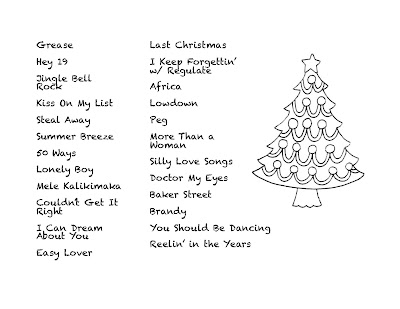 Grease
Hey 19
Jingle Bell
Rock
Kiss On My List
Steal Away
Summer Breeze
50 Ways
Lonely Boy
Mele Kalikimaka
Couldn't Get It
Right
I Can Dream
About You
Easy Lover
Last Christmas
I Keep Forgettin'
w/ Regulate
Africa
Lowdown
Peg
More Than a
Woman
Silly Love Songs
Doctor My Eyes
Baker Street
Brandy
You Should Be Dancing
Reelin' in the Years